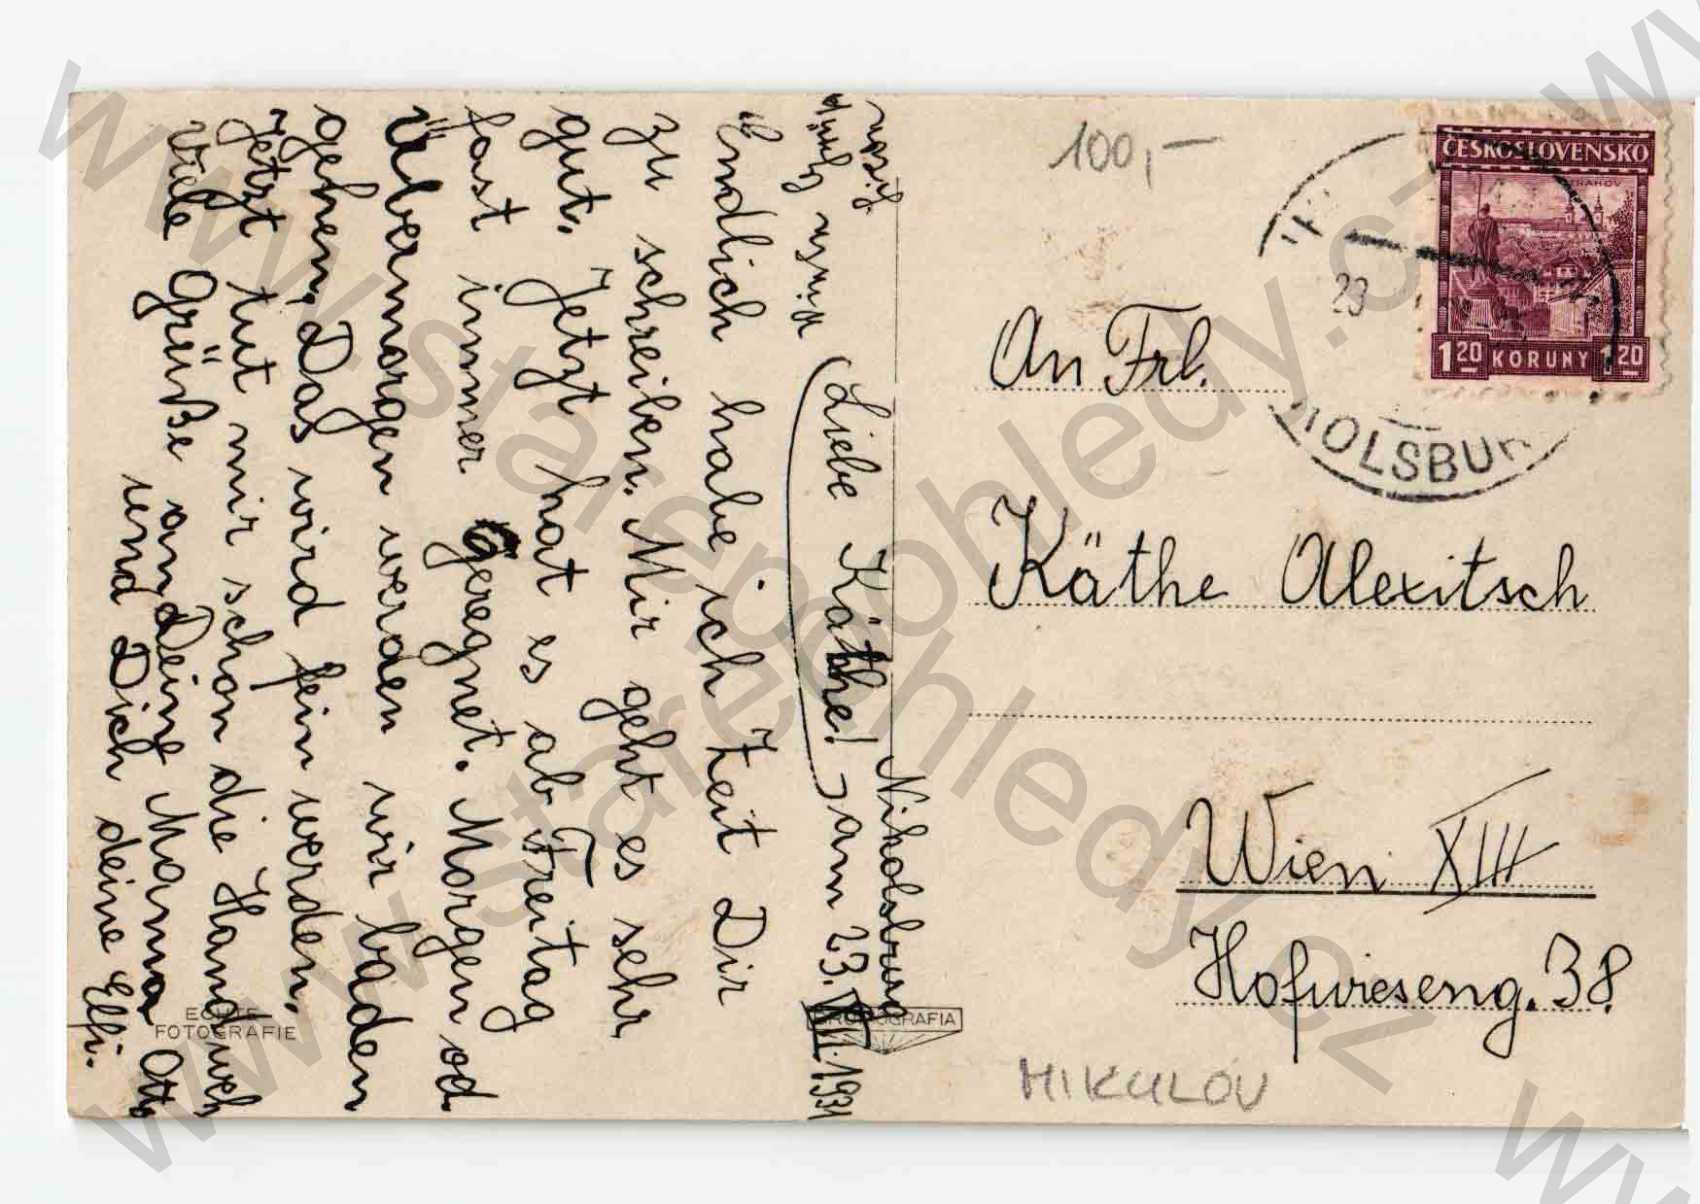 Nikolsburg
am 23. VII. 1931
Liebe Käthe!
Endlich habe ich Zeit Dir
zu schreiben. Mir geht es sehr
gut. Jetzt hat es ab Freitag
fast immer geregnet. Morgen od.
Übermorgen werden wir baden
gehen. Das wird fein werden.
Jetzt tut mir schon die Hand weh
Viele Grüße an Deine Mama Otto
und Dich deine Elfi.
ECHTE
FOTOGRAFIE
100,-
ČESKOSLOVENSKO
STRAHOV
1 20 KORUNY 1 20
23
An Frl.
Käthe Alexitsch
Wien XIII
Hofwieseng. 38
MIKULOV
www.starepohledy.cz
www.starepohledy.cz